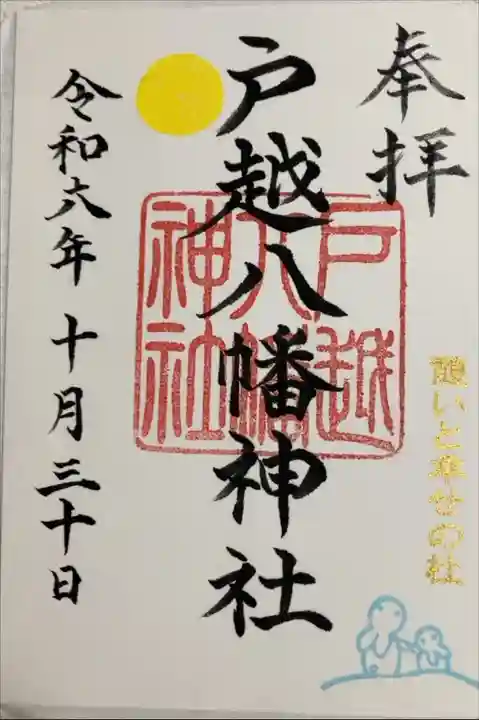 奉拝
憩いと幸せの社
戸越八幡神社
戸越
八幡
神社
令和六年十月三十日